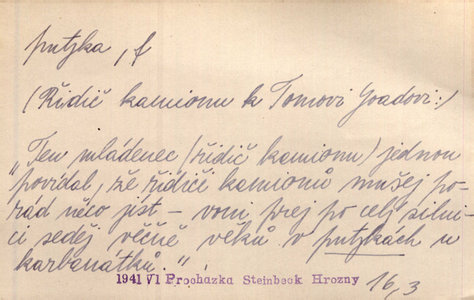 putzka, f
(Řidič kamionu k Tomovi Joadovi:)
„Ten mládenec (řidič kamionu) jednou
povídal, že řidiči kamionů mušej po-
rád něco jíst – vom prej po celý silni-
ci seděj věčně věků v putzkách u
karbanátků."
1941 VI Prochazka Steinbeck Hrozny
16,3